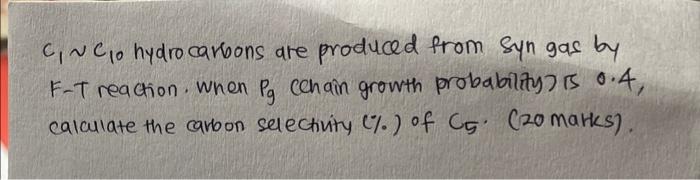 C₁ ~ C₁₀ hydrocarbons are produced from syn gas by
F-T reaction. When Pg (chain growth probability) is 0.4,
calculate the carbon selectivity (%.) of C₅. (20 marks).